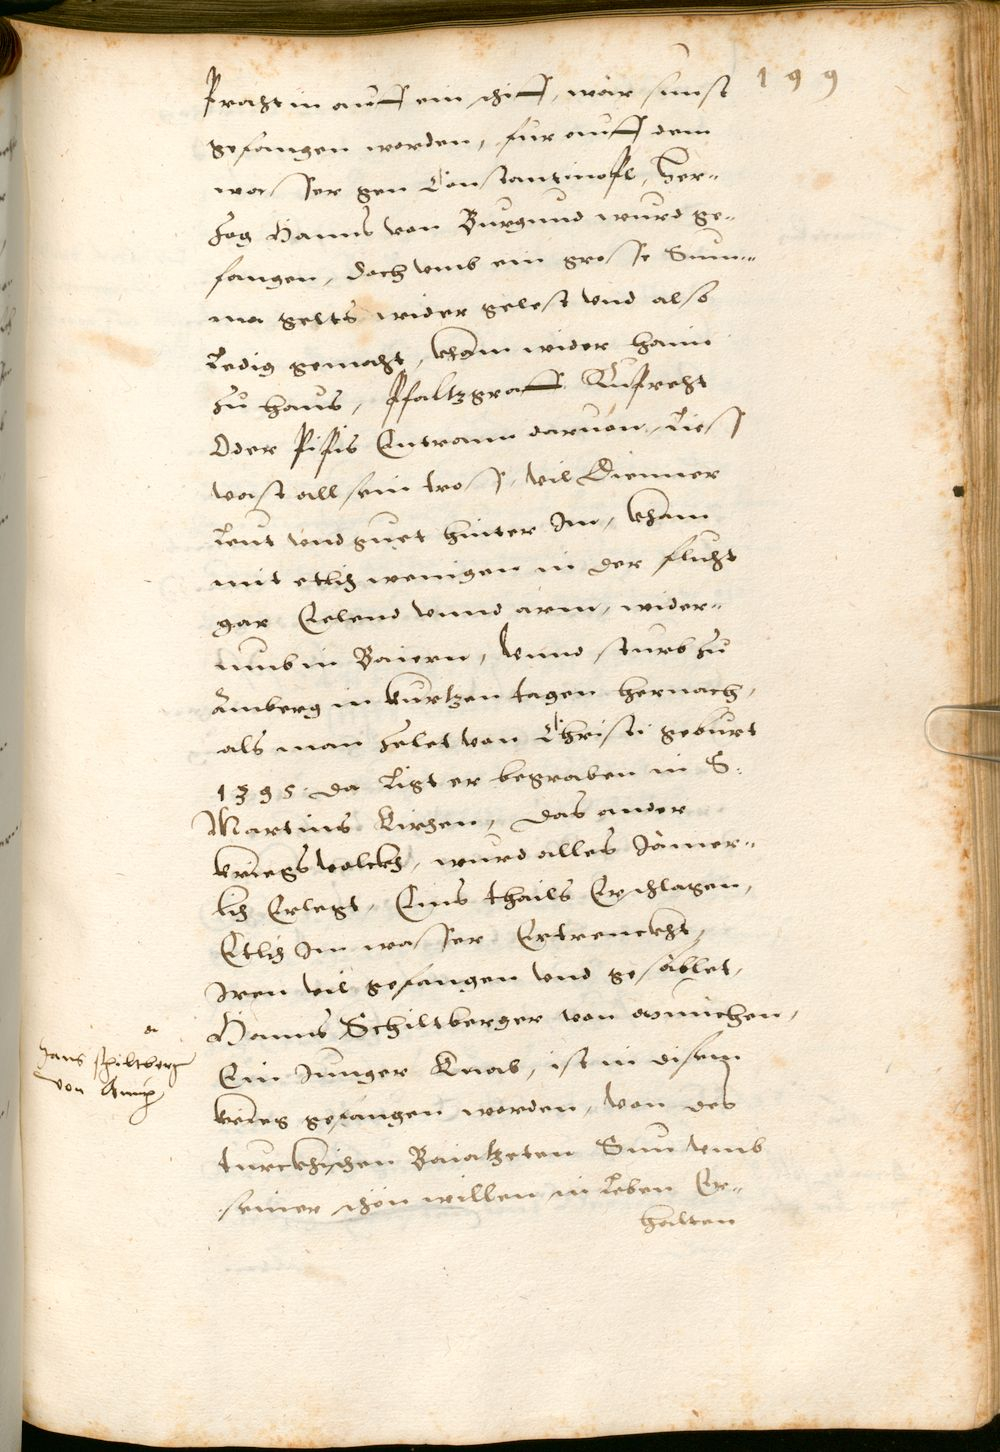 199
Pracht in auff ein schiff, wär sunst
gefangen worden, fur auff dem
wasser gen Constantinopl, Her-
zog Hanns von Burgund wurd ge-
fangen, doch vmb ein grosse Sum-
ma gelts wider gelest vnd also
Ledig gemacht, kham wider haim
zu haus, Pfaltzgraff Ruprecht
Oder Pipis Entrann daruon, Liess
vast all sein tross, vil Diennner
Leut vnd guet hinter Im, kham
mit etlich wenigen in der flucht
gar Eelend vnnd arm, wider-
umb in Baiern, Vnnd sturb zu
Amberg in kurtzen tagen hernach,
als man zelet von Christi geburt
1395. Da Ligt er begraben in S.
Martins Kirchen, Das ander
kriegsvolckh, wurd alles Jämer-
lich Erlegt, Eins thails Erschlagen,
Etlich Im wasser Ertrenckht,
Iren vil gefangen vnd gesäblet,
Hanns Schiltberger von München,
Ein Junger Knab, ist in disem
krieg gefangen worden, Von des
turckhischen Baiatzeten Sun vmb
seiner schön willen in Leben Er-
halten
Hans schiltberg
von